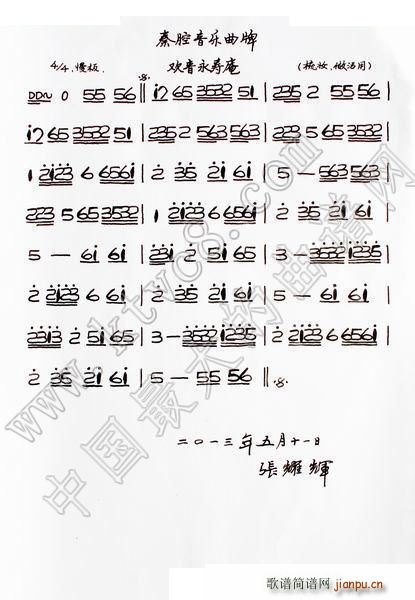 秦腔音乐曲牌
4/4 慢板. 欢音永寿庵 (梳妆、做活用)
DD~ 0 55 56 ‖: i7 65 3532 51 | 2235 2 55 56 |
i7 65 3532 51 | 2235 2 563 563 | 5 65 3532 |
1 2123 6 6561 | 2 35 21 61 | 5 — 563 563 |
223 5 65 3532 | 1 2123 6 6561 | 2 35 21 61 |
5 — 61 61 | 2313 2 51 65 | 3 — 3532 1235 |
2 2123 6 61 | 2 35 21 61 | 5 — 61 61 |
2313 2 51 65 | 3 — 3532 1235 | 2 2123 6 6561 |
2 35 21 61 | 5 — 55 56 ‖
二〇一三年五月十一日
張耀輝
www.ktvc8.com
中国最大的曲谱网
歌谱简谱网
jianpu.cn